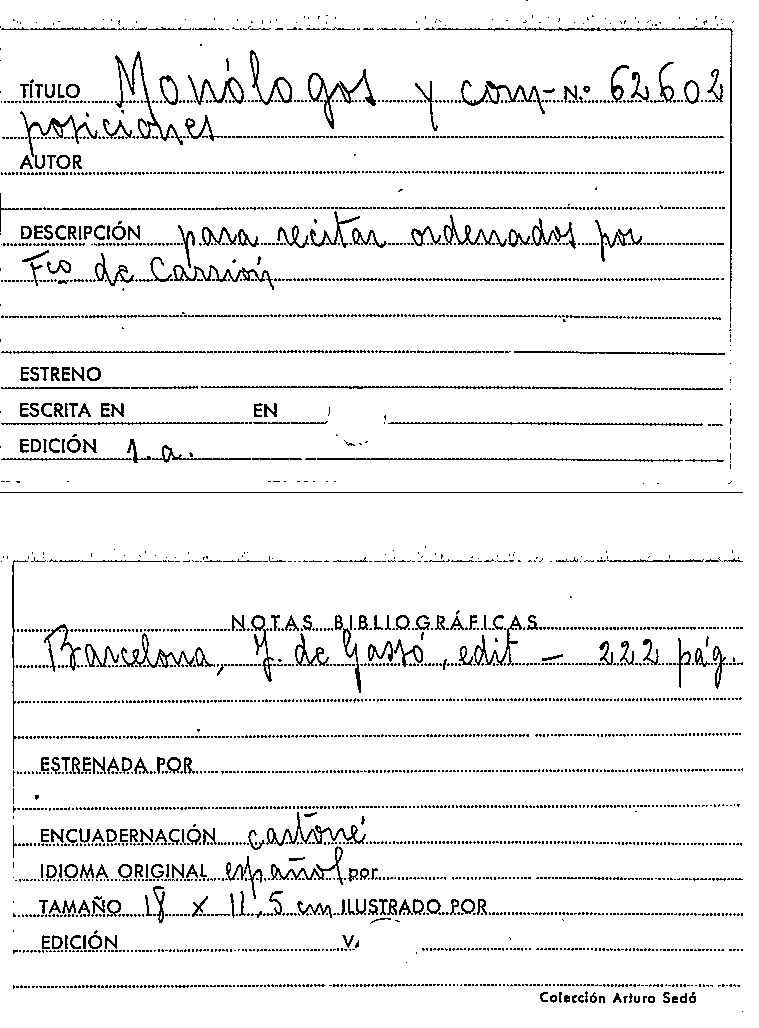 TÍTULO Monólogos y com- N.º 62602
posiciones
AUTOR
DESCRIPCIÓN para recitar ordenados por
Fco de Carrión
ESTRENO
ESCRITA EN EN
EDICIÓN 1.a.
NOTAS BIBLIOGRÁFICAS
Barcelona, J. de Gassó, edit - 222 pág.
ESTRENADA POR
ENCUADERNACIÓN cartoné
IDIOMA ORIGINAL español por
TAMAÑO 18 x 11,5 cm ILUSTRADO POR
EDICIÓN V.
Colección Arturo Sedó